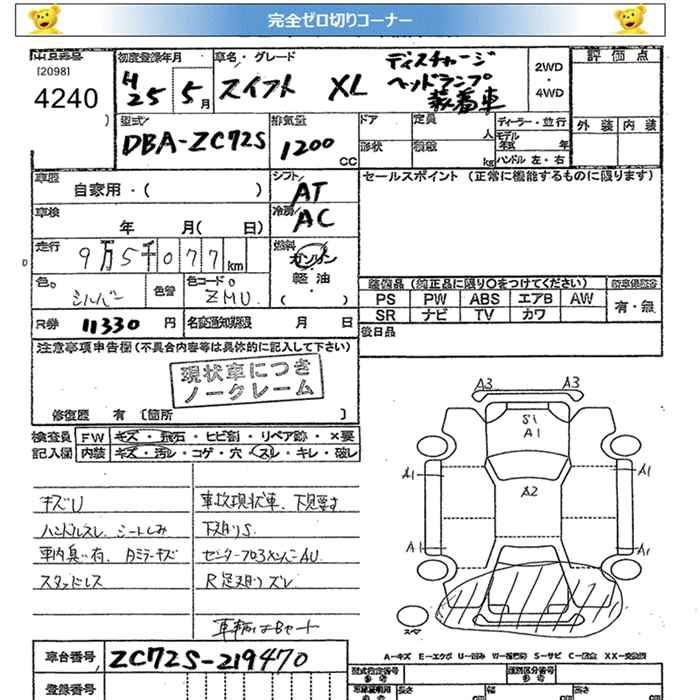 完全ゼロ切りコーナー
出品番号 初度登録年月 車名・グレード ディスチャージ 評価点
[2098] ヘッドランプ 2WD
4240 H25 5月 スイフト XL 装着車 4WD
型式 DBA-ZC72S 排気量 1200cc ドア 定員 人 ディーラー・並行 外装 内装
形状 積載 kg モデル 年 ハンドル 左・右
車歴 自家用・( ) シフト AT セールスポイント (正常に機能するものに限ります)
車検 年 月( 日) 冷房 AC
走行 9万5千077km 燃料 ガソリン
軽油
・( )
色 シルバー 色替 色コードNo ZMU
装備品 (純正品に限り〇をつけてください)
PS PW ABS エアB AW 有・無
SR ナビ TV カワ
R券 11330円 名変通知期限 月 日 後日品
注意事項申告欄(不具合内容等は具体的に記入して下さい)
現状車につき
ノークレーム
修復歴 有 [箇所 ]
検査員 FW キズ・飛石・ヒビ割・リペア跡・×要
記入欄 内装 キズ・汚レ・コゲ・穴・スレ・キレ・破レ
キズU 事故現状車、下見要す
ハンドルスレ、シートしみ 下廻りS
車内臭い有、Aミラーキズ
スタッドレス R足廻りズレ
A3 A3
Si
A1
A1 A2 A1
A1 A1
スペア
A-キズ E-エクボ U-凹み W-補修跡 S-サビ C-腐食 XX-交換済
車台番号 ZC72S-219470
型式指定番号 類別区分番号
登録番号 長さ 幅 高さ